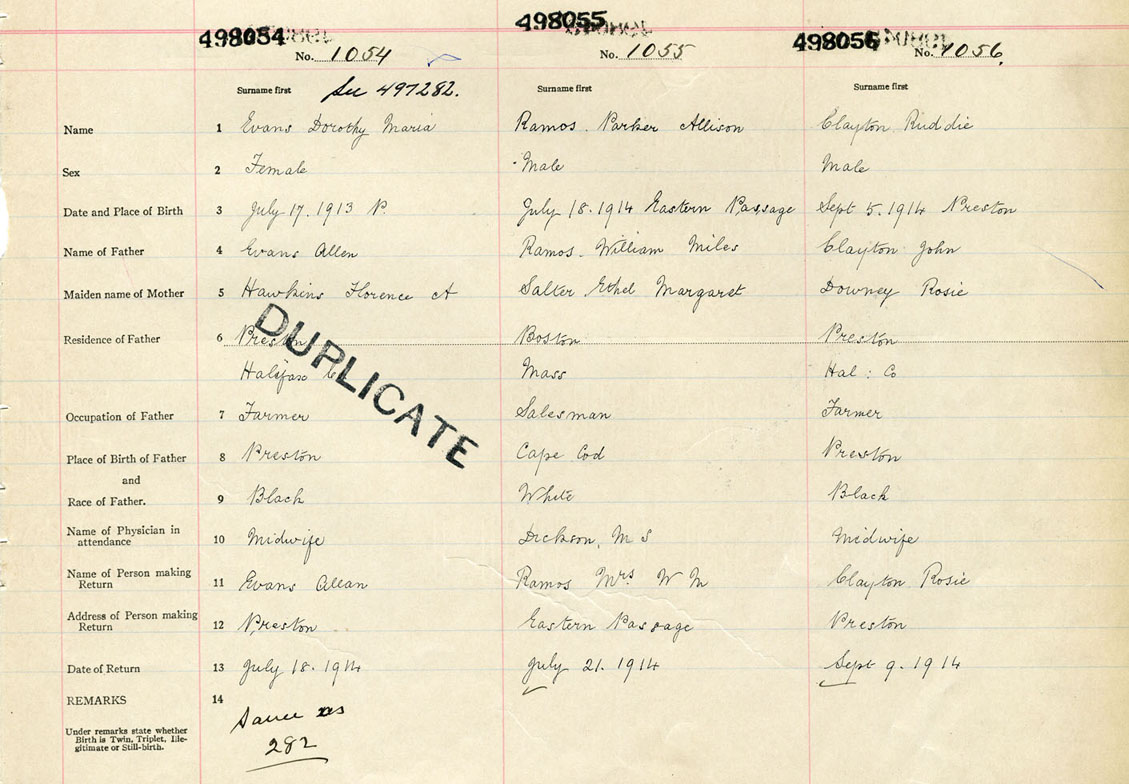 498054 498055 498056
No. 1054 No. 1055 No. 1056
Surname first See 497282. Surname first Surname first
Name 1 Evans Dorothy Maria Ramos. Parker Allison Clayton Ruddie
Sex 2 Female Male Male
Date and Place of Birth 3 July 17. 1913 P. July 18. 1914 Eastern Passage Sept 5. 1914 Preston
Name of Father 4 Evans Allen Ramos. William Miles Clayton John
Maiden name of Mother 5 Hawkins Florence A Salter Ethel Margaret Downey Rosie
Residence of Father 6 Preston Boston Preston
Halifax Mass Hal : Co
DUPLICATE
Occupation of Father 7 Farmer Salesman Farmer
Place of Birth of Father 8 Preston Cape Cod Preston
and
Race of Father. 9 Black White Black
Name of Physician in
attendance 10 Midwife Dickson, M S Midwife
Name of Person making
Return 11 Evans Allan Ramos Mrs W M Clayton Rosie
Address of Person making
Return 12 Preston Eastern Passage Preston
Date of Return 13 July 18. 1914 July 21. 1914 Sept 9. 1914
REMARKS 14
Same as
282
Under remarks state whether
Birth is Twin, Triplet, Ille-
gitimate or Still-birth.